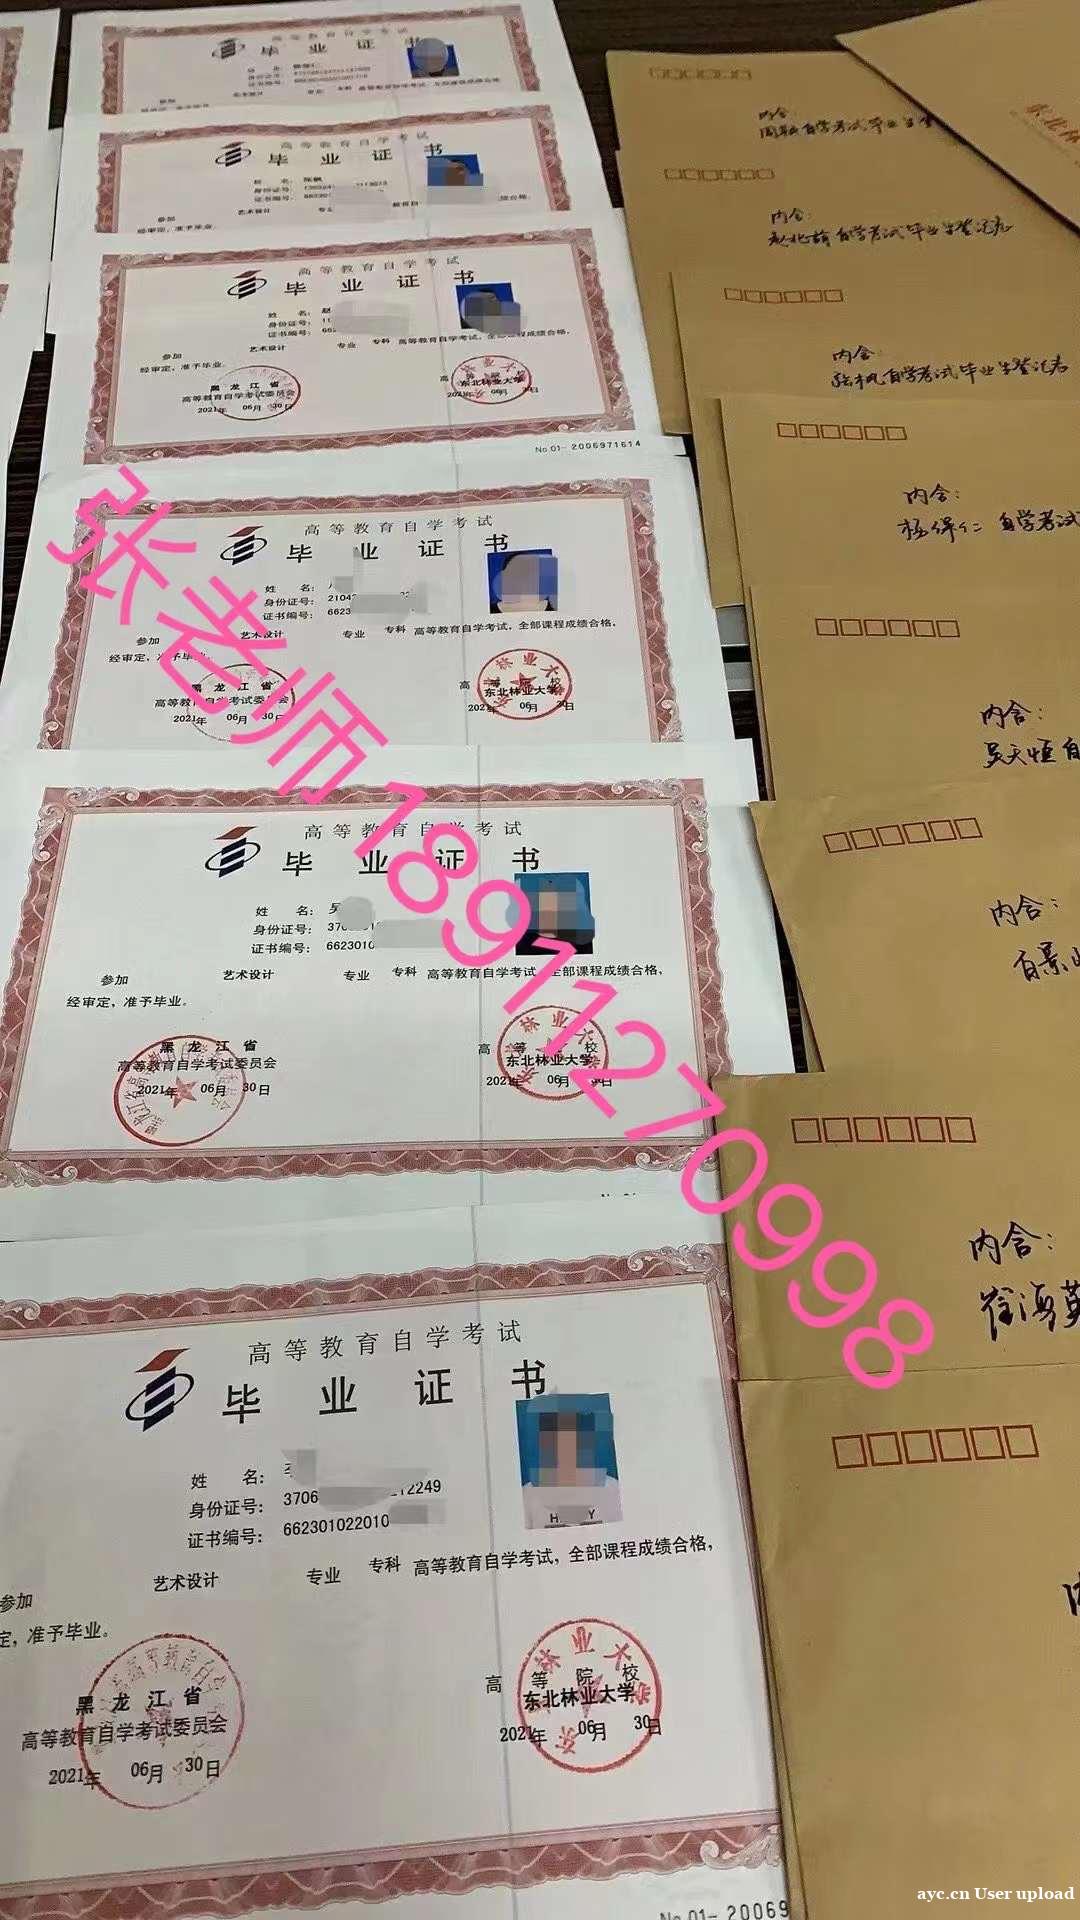 高等教育自学考试
毕业证书
艺术设计
专业
专科
参加
高等教育自学考试
毕业证书
姓 名:
身份证号:
证书编号:
艺术设计
参加
经审定，准予毕业。
高等教育自学考试
毕业证书
姓 名: 赵
身份证号: 11
证书编号: 66
参加 艺术设计 专业 专科 高等教育自学考试，全部课程成绩合格，
经审定，准予毕业。
黑龙江省
高等教育自学考试委员会
2021年 06月 30日
高等院校
东北林业大学
2021年 06月 30日
No.01- 2006971614
高等教育自学考试
毕业证书
姓 名:
身份证号: 2104
证书编号: 6623
参加 艺术设计 专业 专科 高等教育自学考试，全部课程成绩合格，
经审定，准予毕业。
黑龙江省
高等教育自学考试委员会
2021年 06月 30日
高等院校
东北林业大学
2021年 06月
高等教育自学考试
毕业证书
姓 名: 吴
身份证号: 370
证书编号: 6623010
参加 艺术设计 专业 专科 高等教育自学考试，全部课程成绩合格，
经审定，准予毕业。
黑龙江省
高等教育自学考试委员会
2021年 06月 30日
高等院校
东北林业大学
2021年 06月 30日
高等教育自学考试
毕业证书
姓 名: 李
身份证号: 3706 2249
证书编号: 662301022010
参加 艺术设计 专业 专科 高等教育自学考试，全部课程成绩合格，
定，准予毕业。
黑龙江省
高等教育自学考试委员会
2021年 06月 30日
高等院校
东北林业大学
2021年 06月 30日
No.01- 20069
内含:
自学考试毕业生登
东北林
内含:
自学考试毕业生登记表
内含:
张帆自学考试毕业生登记表
内含:
杨保仁 自学考试
内含:
吴天恒自
内含:
内含:
崔海英
张老师18911270998
ayc.cn User upload